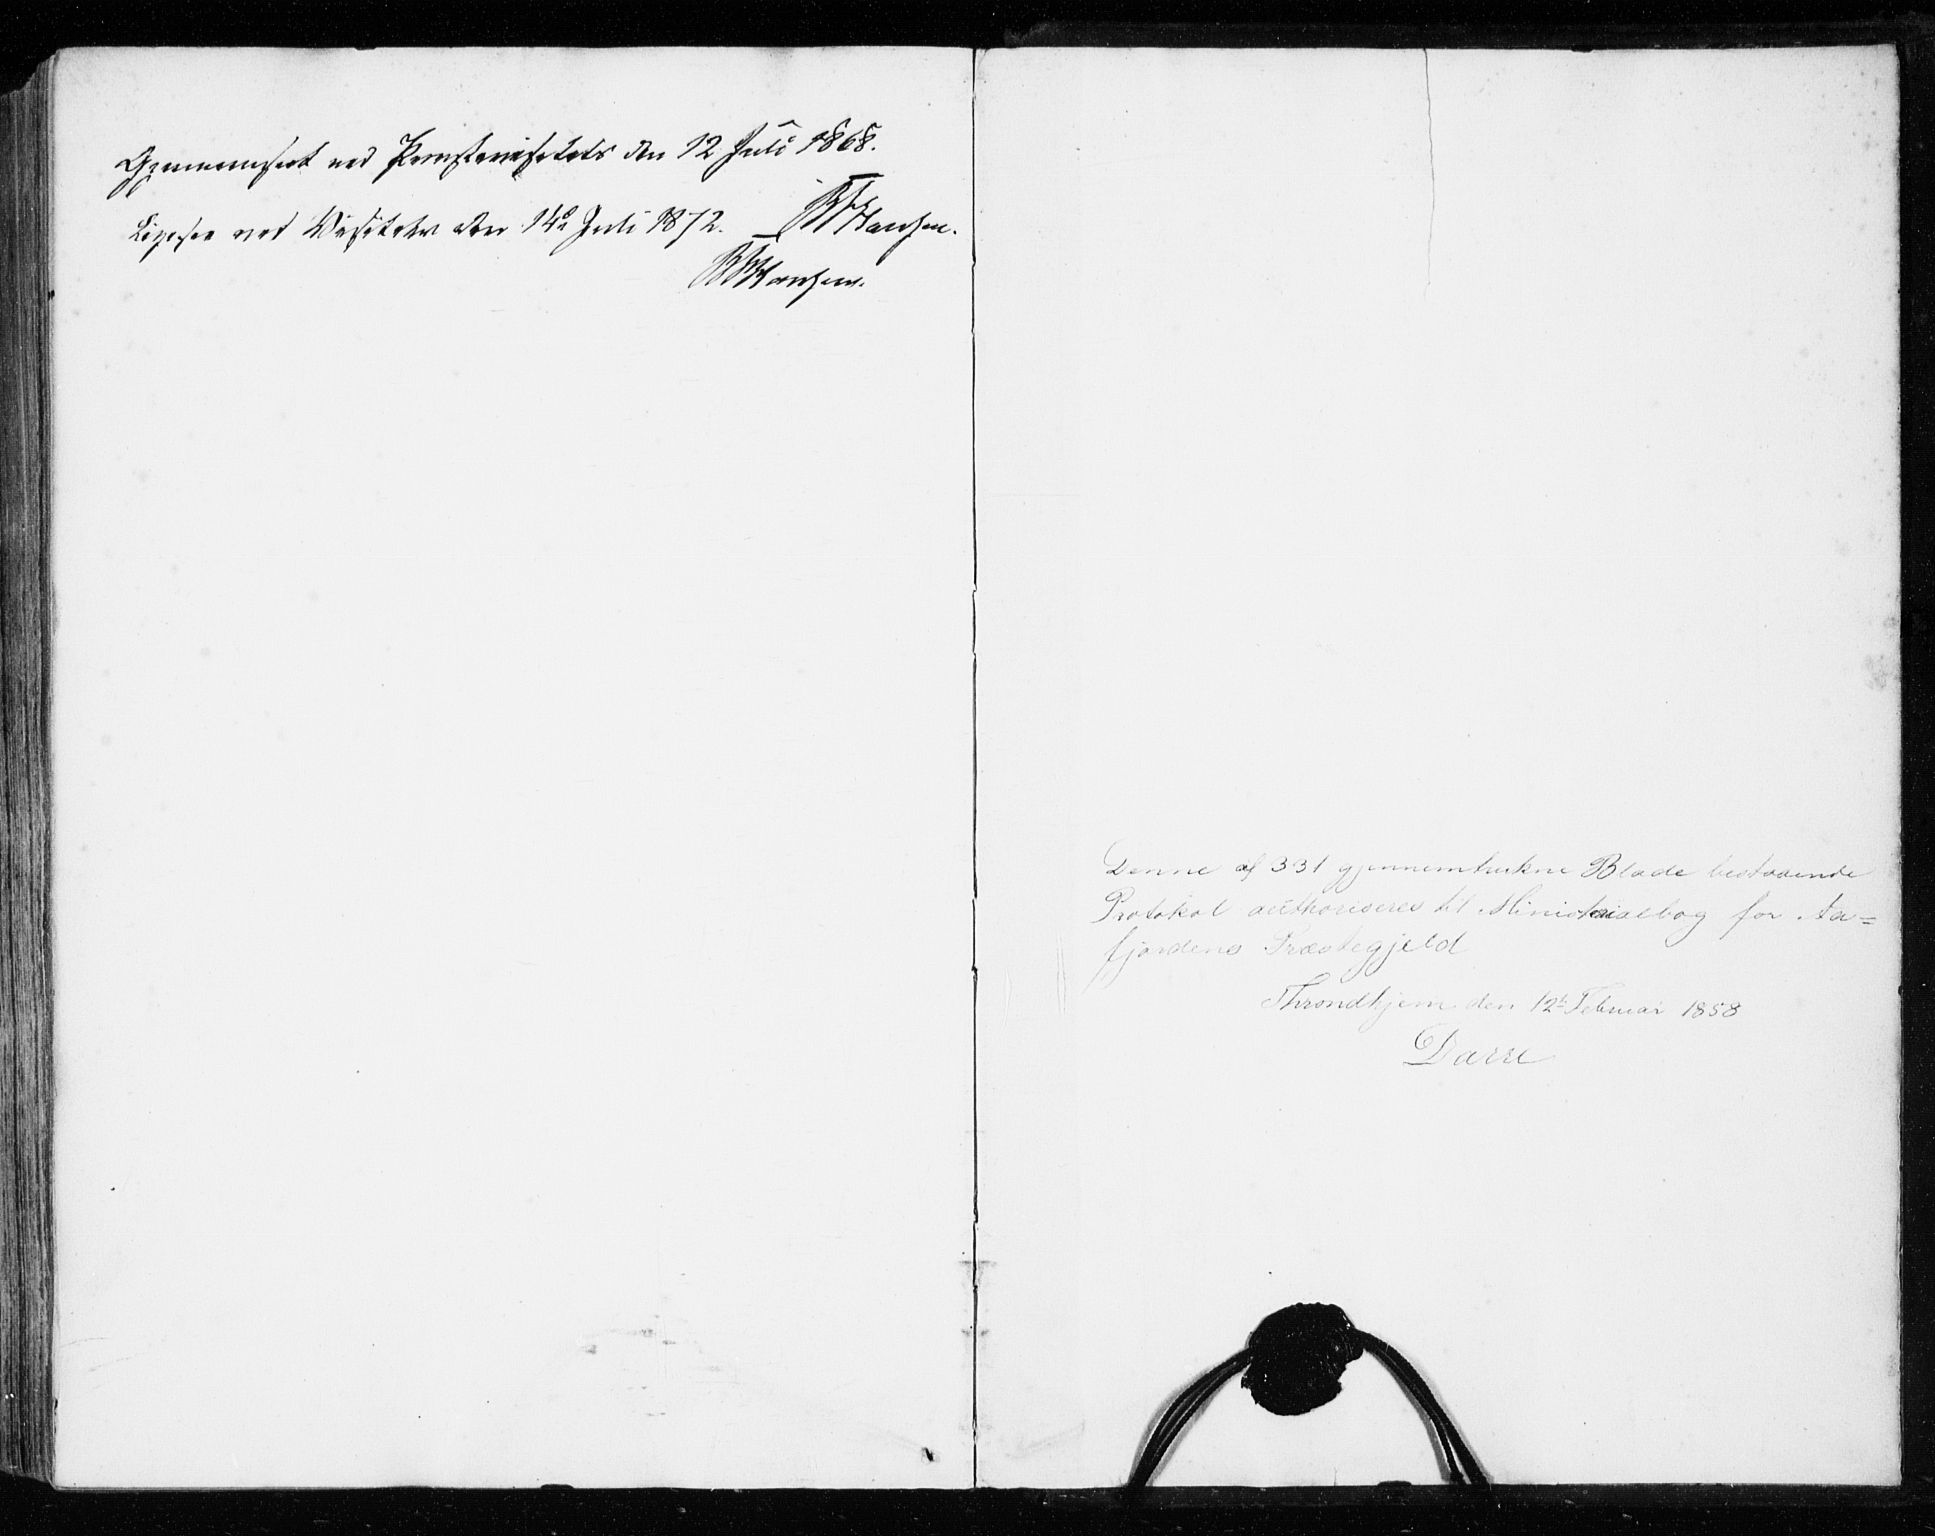 Gjennemseet ved Provstevisitats den 12 Juli 1868.
Hansen.
Ligesaa ved Visitats den 14de Juli 1872.
Hansen.
Denne af 331 gjennemtrukne Blade bestaaende
Protokol authoriseres til Ministerialbog for Aa=
fjordens Præstegjeld
Throndhjem den 12te Februar 1858
Darre